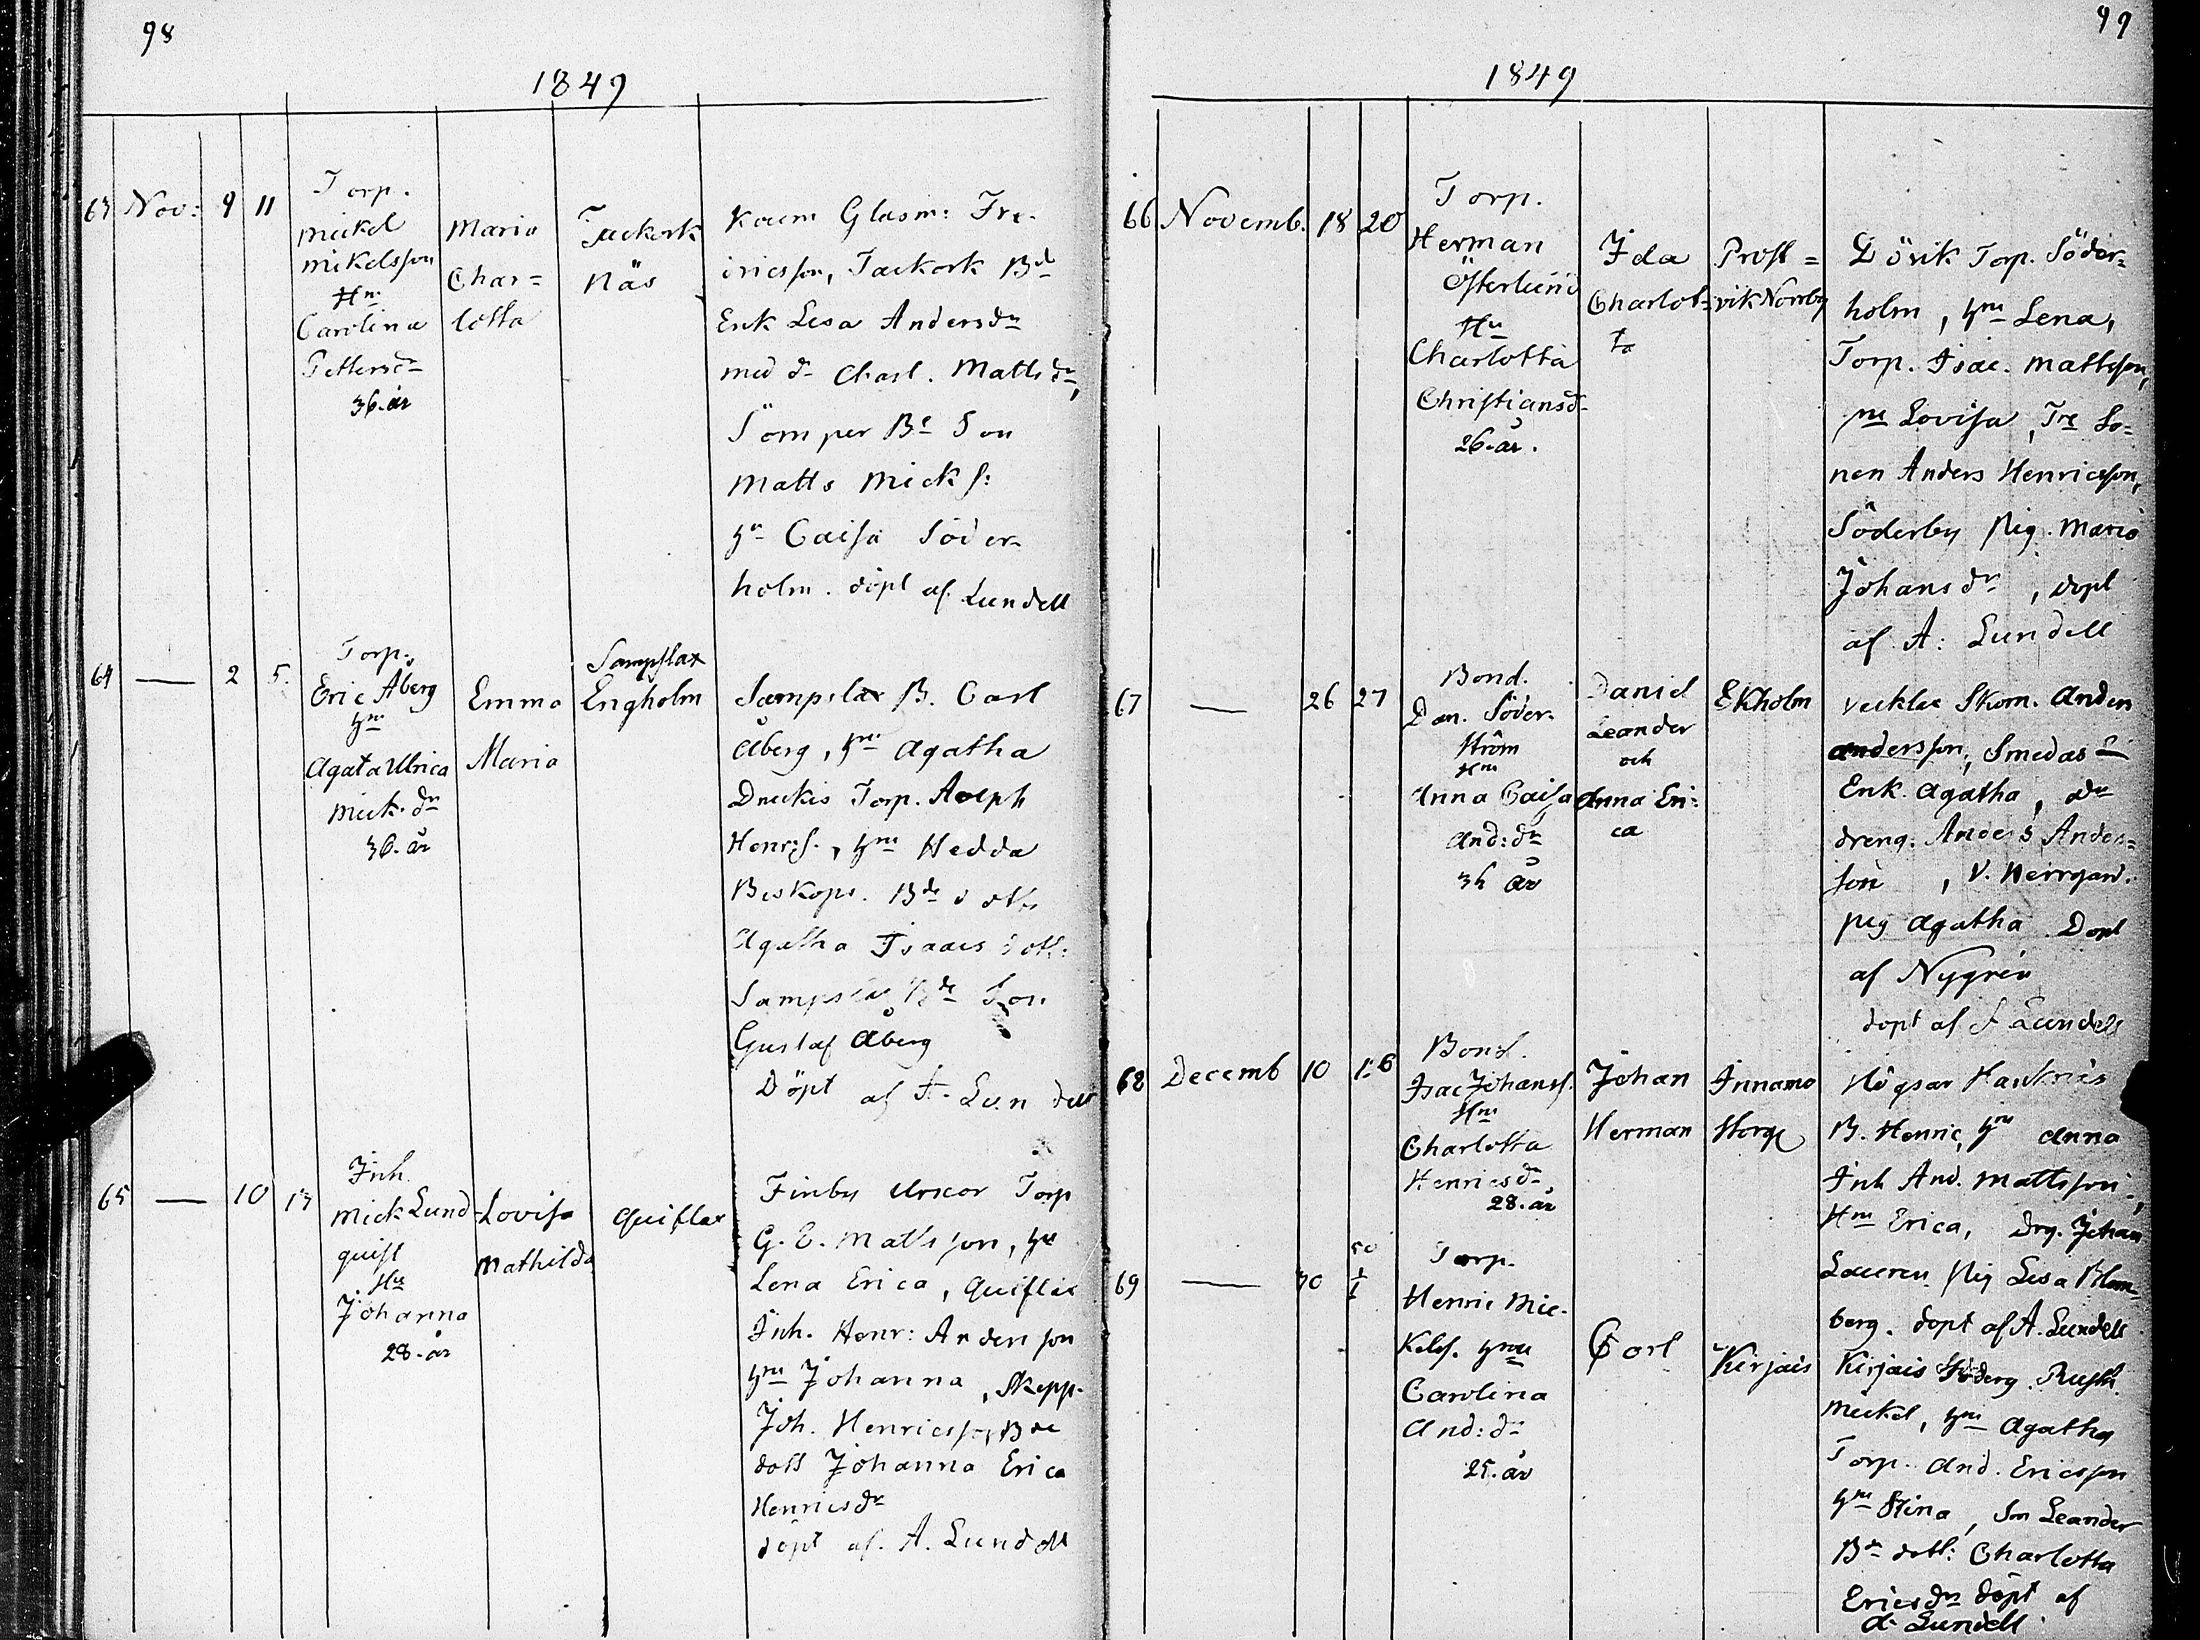 98
1849
63 Nov: 9 11
Torp.
Mickel
Mikelsson
Hn
Carolina
Pettersdr
36. år
Maria
Char=
lotta
Tackork
Näs
Glasm: Fre-
ericsson, Tackork Bd
Enk Lisa Andersdr
med dr Charl. Mattsdr,
Sömper Be Son
Matts Mick s:
hn Caisa Söder-
holm. döpt af Lundell
64 — 2 5.
Torp.
Eric Åberg
hru
Agata Ulrica
Mick. dr
36. år
Emma
Maria
Sampslax
Engholm
Sampslax B. Carl
Åberg, hru Agatha
Torp. Adolph
Henr:s., hru Hedda
Biskops. Bde dott
Agatha Isaacs dott:
Sampslax Bde Son
Gustaf Åberg
Döpt af A. Lundell
65 — 10 13
Inh.
Mick Lund-
quist
Hu
Johanna
28. år
Lovisa
Mathilda
Quiflax
Finby Torp
G. E. Mattsson, hu
Lena Erica, Quiflax
Inh. Henr: Andersson
hru Johanna, Skepp.
Joh. Henricsson, Bde
dott Johanna Erica
Henricsdr
döpt af. A. Lundell
99
1849
66 Novemb. 18 20
Torp.
Herman
Österlund
Hu
Charlotta
Christiansd-
26. år.
Ida
Charlot=
ta
Prost=
vik Norrby
Lövik Torp. Söder=
holm, hru Lena,
Torp. Isac. Mattsson,
hru Lovisa, Tre So=
nen Anders Henricsson,
Söderby Pig. Maria
Johansdr, döpt
af A: Lundell
67 — 26 27
Bond.
Dan. Söder-
ström
Hru
Anna Caisa
And:dr
år
Daniel
Leander
och
Anna Eri=
ca
Ekholm
Skom. Anders
Andersson, Smedas
Enk. Agatha, dr
dreng. Anders Anders=
son, V. Herrgård.
pig Agatha Döpt
af Nygrén
döpt af A Lundell
68 Decemb 10 16
Bond.
Isac Johanss.
Hru
Charlotta
Henricsdr
28. år
Johan
Herman
Innamo
Storg
Högsar
B. Henric, hru Anna
Inh And. Mattsson,
Hru Erica, Drg. Johan
Lauren Pig Lisa Blom-
berg. döpt af A. Lundell
69 — 30 1/1 50
Torp.
Henric Mic-
kels. hru
Carolina
And: dr
25. år
Carl
Kirjais
Kirjais Söderg Rusth.
Mickel, hru Agatha
Torp. And. Ericsson
hru Stina, Son Leander
Bde dott: Charlotta
Ericsdr döpt af
A. Lundell.